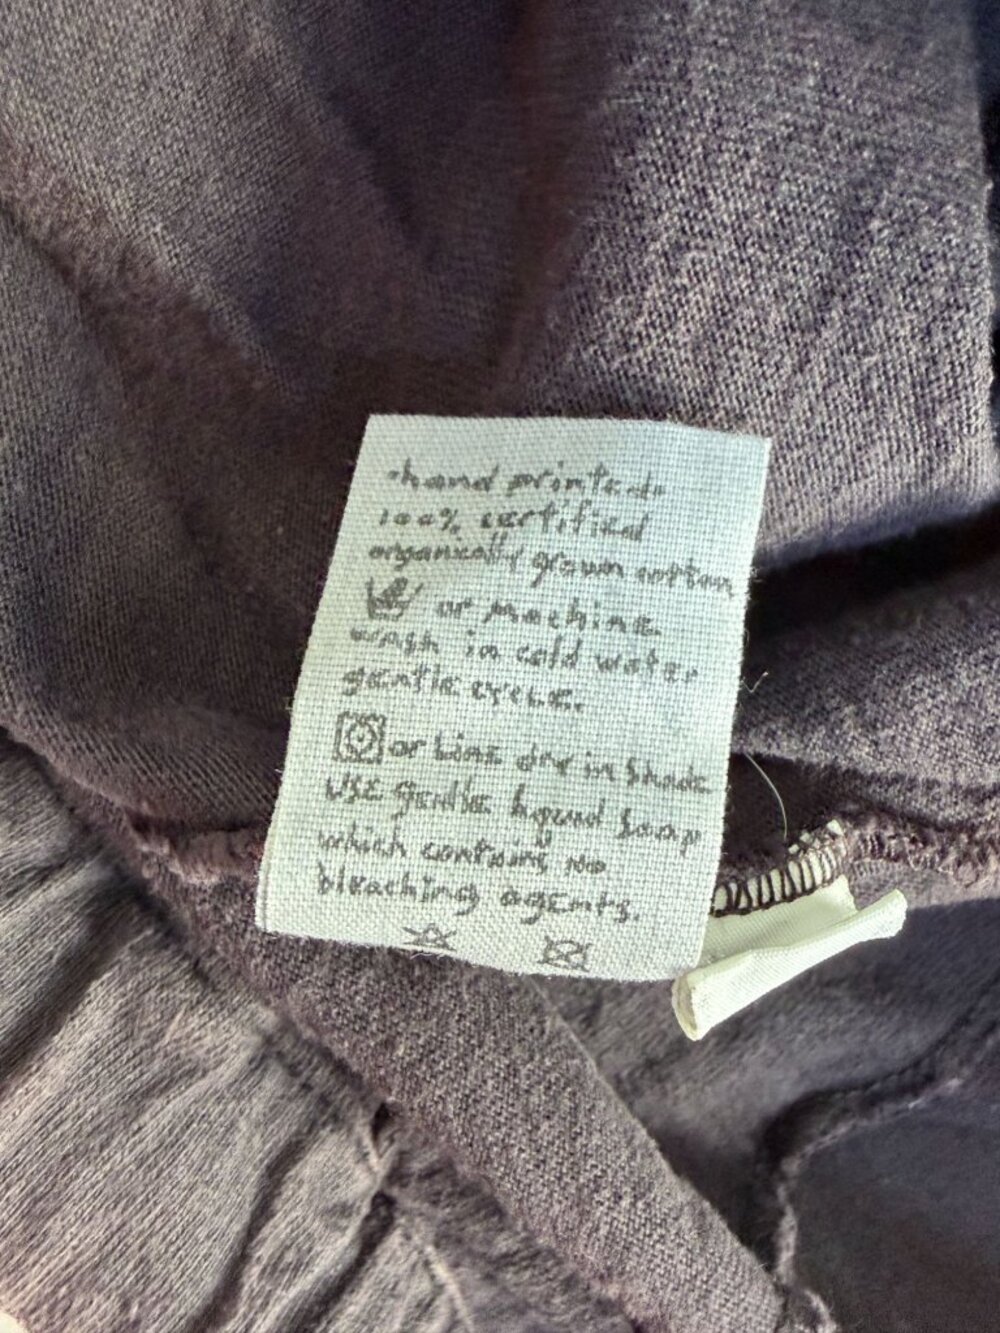 •hand printed•
100% certified
organically grown cotton
or machine
wash in cold water
gentle cycle.
or line dry in shade
USE gentle liquid soap
which contains NO
bleaching agents.